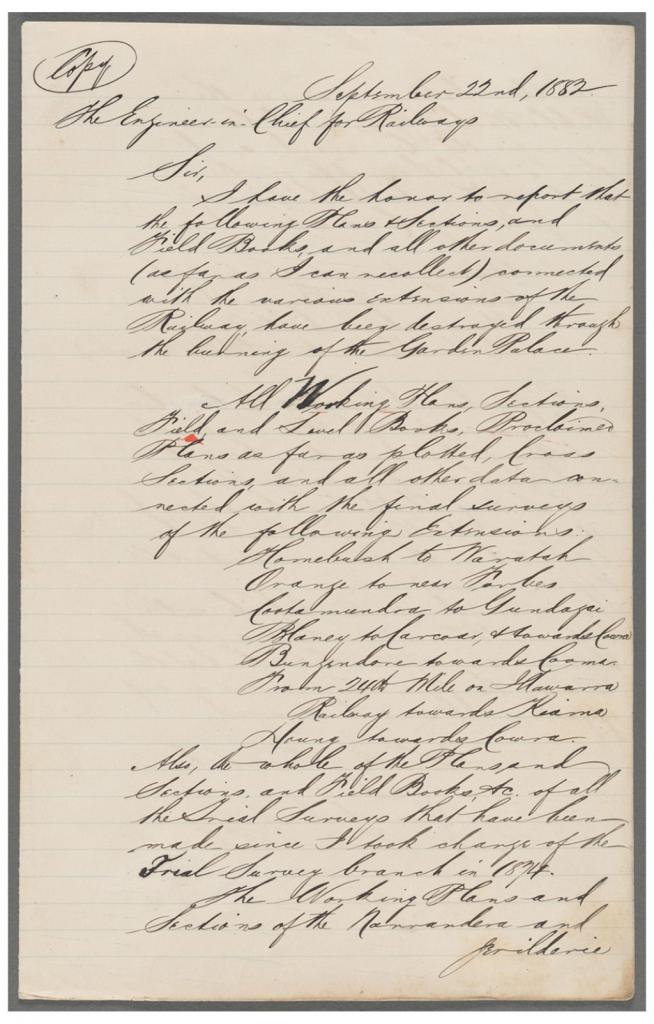 Copy
September 22nd, 1882
The Engineer-in-Chief for Railways
Sir,
I have the honor to report that
the following Plans & Sections, and
Field Books, and all other documents
(as far as I can recollect) connected
with the various extensions of the
Railway, have been destroyed through
the burning of the Garden Palace.
All Working Plans, Sections,
Field, and Level Books, Proclaimed
Plans as far as plotted, Cross
Sections, and all other data con-
nected with the final surveys
of the following Extensions:
Homebush to Waratah
Orange to near Forbes
Cootamundra to Gundagai
Blaney to Carcoar, & towards Cowra
Bungendore towards Cooma.
From 24th Mile on Illawarra
Railway towards Kiama
Young towards Cowra.
Also, the whole of the Plans, and
Sections, and Field Books, &c. of all
the Trial Surveys that have been
made since I took charge of the
Trial Survey branch in 1874.
The Working Plans and
Sections of the Narrandera and
Jerilderie